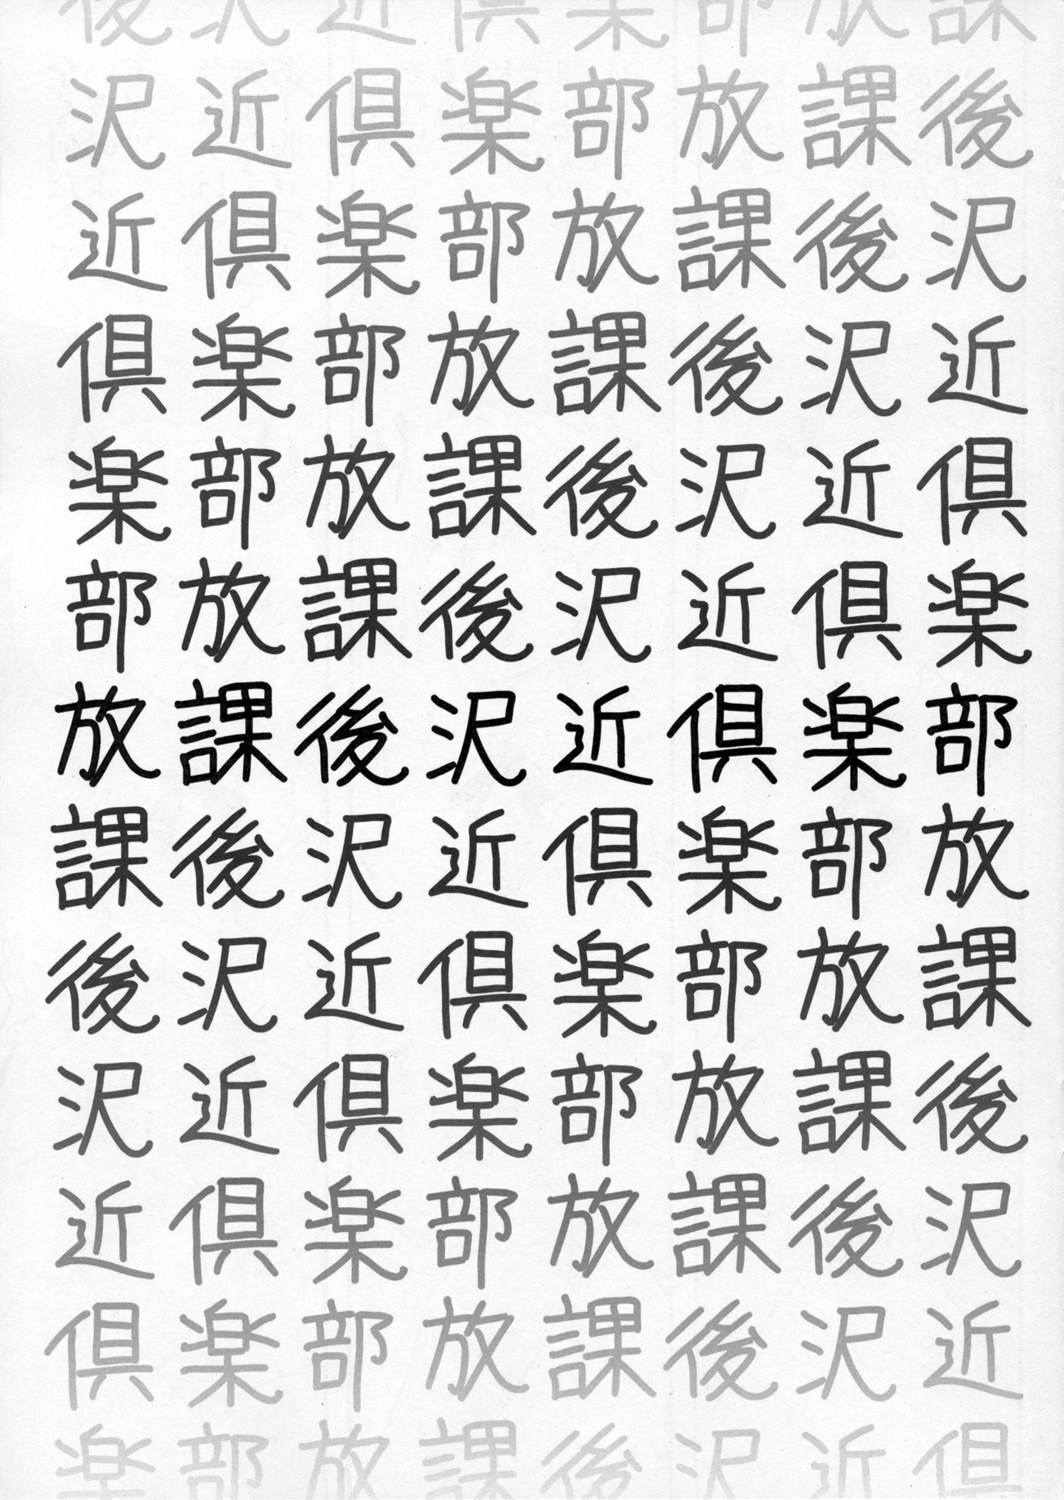 後沢近倶楽部放課
沢近倶楽部放課後
近倶楽部放課後沢
倶楽部放課後沢近
楽部放課後沢近倶
部放課後沢近倶楽
放課後沢近倶楽部
課後沢近倶楽部放
後沢近倶楽部放課
沢近倶楽部放課後
近倶楽部放課後沢
倶楽部放課後沢近
楽部放課後沢近倶